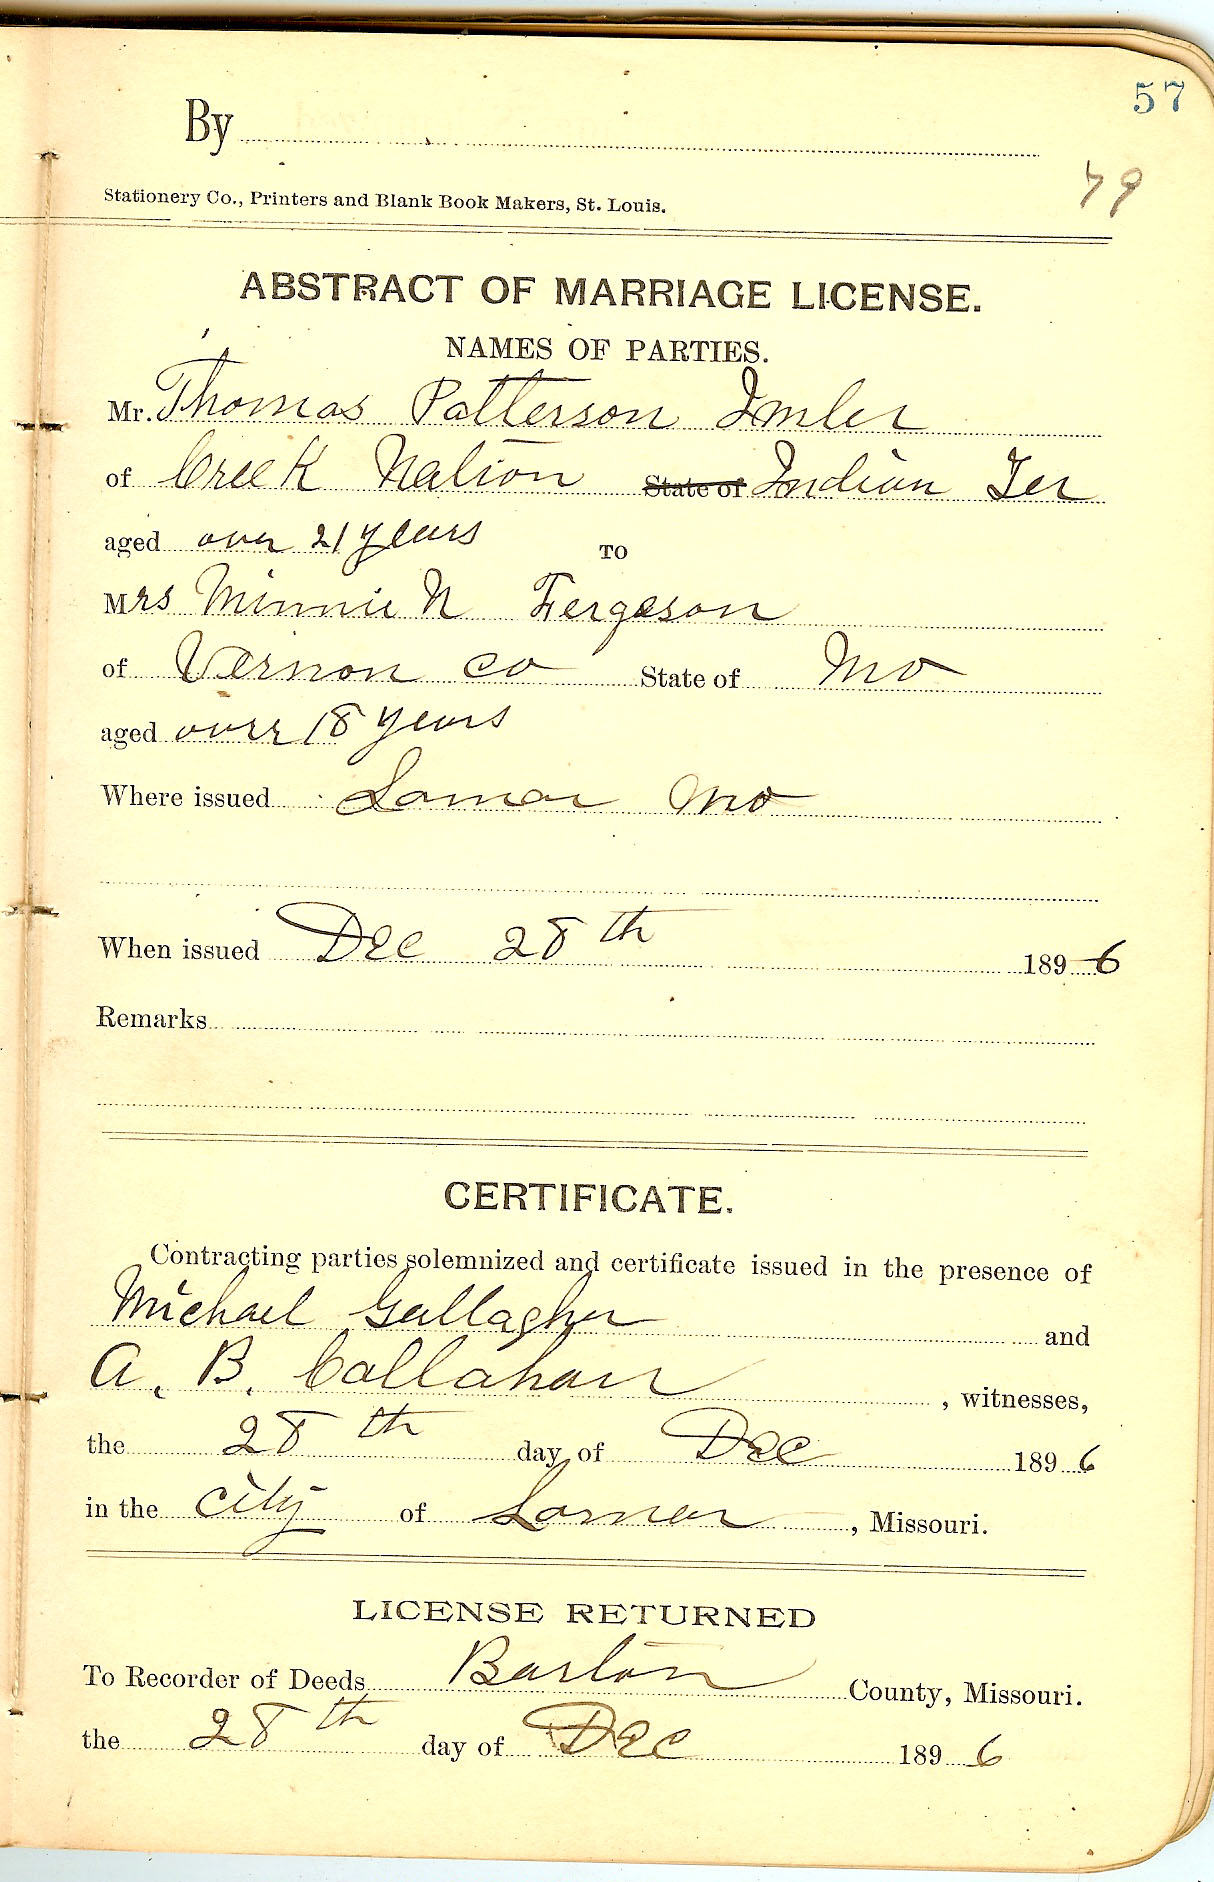 57
By
79
Stationery Co., Printers and Blank Book Makers, St. Louis.
ABSTRACT OF MARRIAGE LICENSE.
NAMES OF PARTIES.
Mr. Thomas Patterson Imler
of Creek Nation State of Indian Ter
aged over 21 years TO
Mrs Minnie N Fergeson
of Vernon co State of Mo
aged over 18 years
Where issued Lamar Mo
When issued Dec 28th 1896
Remarks
CERTIFICATE.
Contracting parties solemnized and certificate issued in the presence of
Michael Gallagher and
A. B. Callahan , witnesses,
the 28th day of Dec 1896
in the city of Lamar , Missouri.
LICENSE RETURNED
To Recorder of Deeds Barton County, Missouri.
the 28th day of Dec 1896